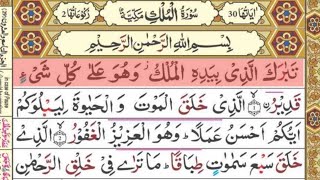 اٰیَاتُهَا 30 سُوْرَةُ الْمُلْكِ مَكِّیَّةٌ رُكُوْعَاتُهَا 2
بِسْمِ اللّٰهِ الرَّحْمٰنِ الرَّحِیْمِ
تَبٰرَكَ الَّذِیْ بِیَدِهِ الْمُلْكُ ۫ وَهُوَ عَلٰی كُلِّ شَیْءٍ
قَدِیْرُ ۙ الَّذِیْ خَلَقَ الْمَوْتَ وَ الْحَیٰوةَ لِیَبْلُوَكُمْ
اَیُّكُمْ اَحْسَنُ عَمَلًا ؕ وَ هُوَ الْعَزِیْزُ الْغَفُوْرُ ۙ الَّذِیْ
خَلَقَ سَبْعَ سَمٰوٰتٍ طِبَاقًا ؕ مَا تَرٰی فِیْ خَلْقِ الرَّحْمٰنِ